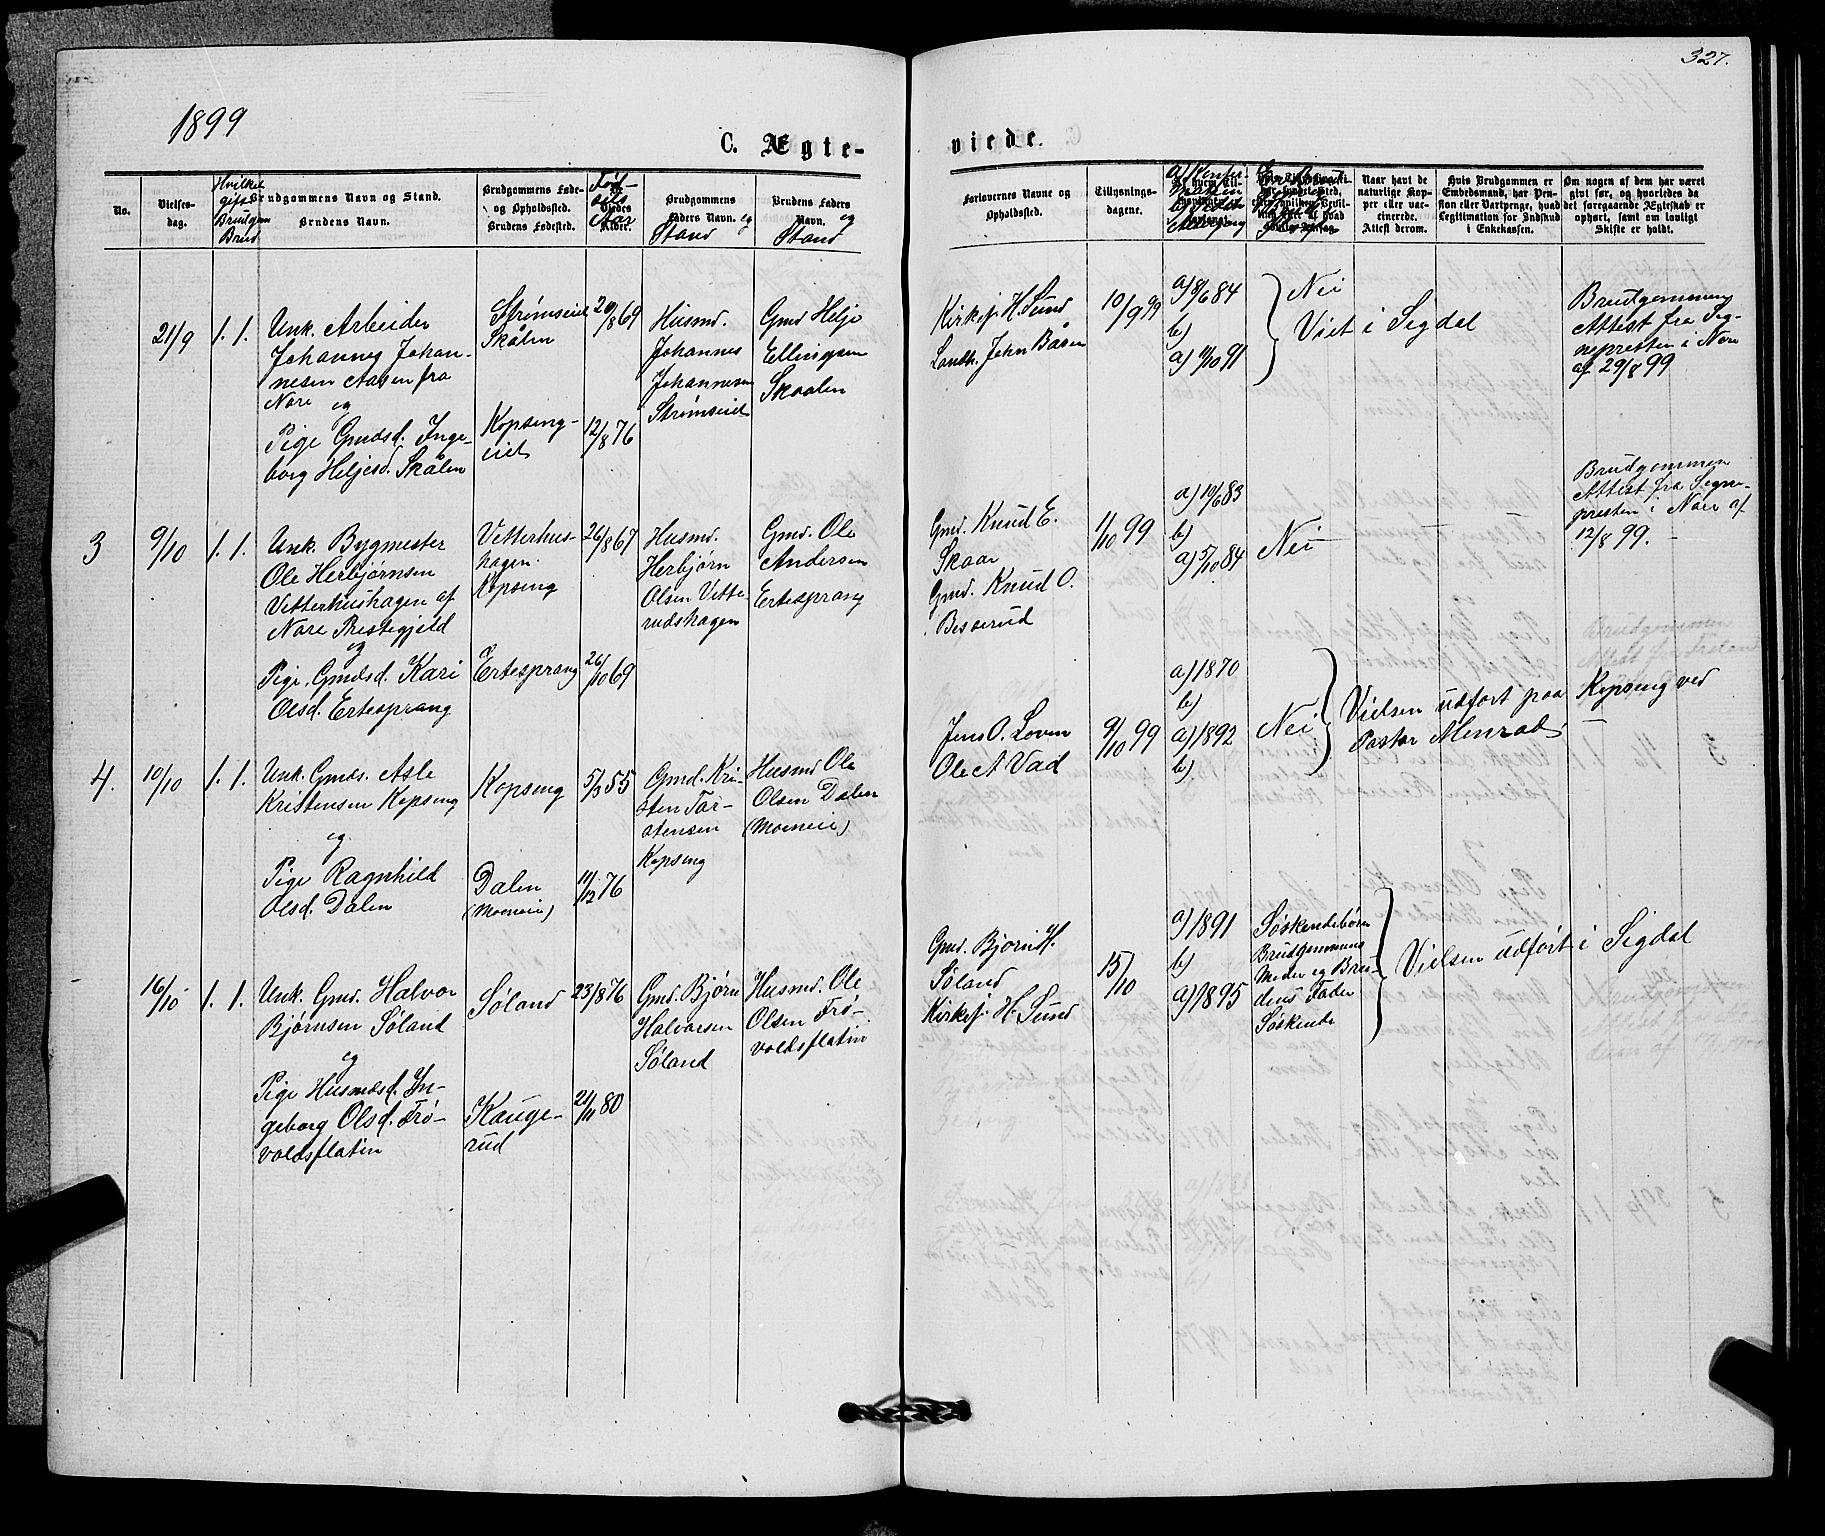 327.
1899
C. Ægte-
viede.
No.
Vielses-
dag.
Hvilket
gift
Brudgom
Brud
Brudgommens Navn og Stand.
Brudens Navn.
Brudgommens Føde-
og Opholdssted.
Brudens Fødested.
Fød-
sels
Aar
Alder.
Brudgommens
Faders Navn. og
Stand
Brudens Faders
Navn. og
Stand
Forlovernes Navne og
Opholdssted.
Tillysnings-
dagene.
Naar havt de
naturlige Kop-
per eller vac-
cinerede.
Attest derom.
Hvis Brudgommen er
Embedsmand, har Pen-
sion eller Vartpenge, hvad
Legitimation for Indskud
i Enkekassen.
Om nogen af dem har været
gift før, og hvorledes da
det foregaaende Ægteskab er
ophørt, samt om lovligt
Skifte er holdt.
21/9
1. 1.
Unk. Arbeider
Johannes Johan-
nesen Aasen fra
Nore og
Pige Gmdsd. Inge-
borg Heljesd. Skålen
Strømseiet
Skålen
Kopseng-
eiet
20/8 69
12/8 76
Husmd.
Johannes
Johannesen
Strømseiet
Gmd Helje
Ellingsen
Skaalen
Kirkesj. H. Sund
Landh. John Båsen
10/9 99
a) 8/6 84
b)
a) 11/10 91
Nei
Viet i Sigdal
Brudgommens
Attest fra Sog-
nepresten i Nore
af 29/8 99
3
9/10
1. 1.
Unk. Bygmester
Ole Herbjørnsen
Vetterhushagen af
Nore Prestegjeld
og
Pige. Gmdsd. Kari
Olsd. Ertesprang
Vetterhus-
hagen.
Kopseng
Ertesprang
26/8 67
26/10 69
Husmd.
Herbjørn
Olsen Vette-
rudshagen
Gmd. Ole
Andersen
Ertesprang
Gmd. Knud E.
Skaar
Gmd. Knud O.
Besserud
1/10 99
a) 10/6 83
b)
a) 5/10 84
Nei
Brudgommen
Attest fra Sogne-
presten i Nore af
12/8 99.
4.
10/10
1. 1.
Unk. Gmds. Asle
Kristensen Kopseng
og
Pige Ragnhild
Olsd. Dalen
Kopseng
Dalen
(Moeneie)
5/3 55
11/12 76
Gmd. Kri-
sten Tor-
stensen
Kopseng
Husmd Ole
Olsen Dalen
(Moeneie)
Jens O. Loven
Ole A Vad
9/10 99
a) 1870
b)
a) 1892
b)
Nei
Vielsen udført paa Kopseng ved
Pastor Menrad
16/10
1. 1.
Unk. Gmd. Halvor
Bjørnsen Søland
og
Pige Husmdsd. In-
geborg Olsd. Frø-
voldsflatin
Søland
Kauge-
rud
23/8 76
21/11 80
Gmd. Bjørn
Halvorsen
Søland
Husmd. Ole
Olsen Frø-
voldsflatin
Gmd. Bjørn H.
Søland
Kirkesj. H. Sund
15/10
a) 1891
b)
a) 1895
Søskendebørn
Brudgommens
Moder og Bru-
dens Fader
Søskende
Vielsen udført i Sigdal